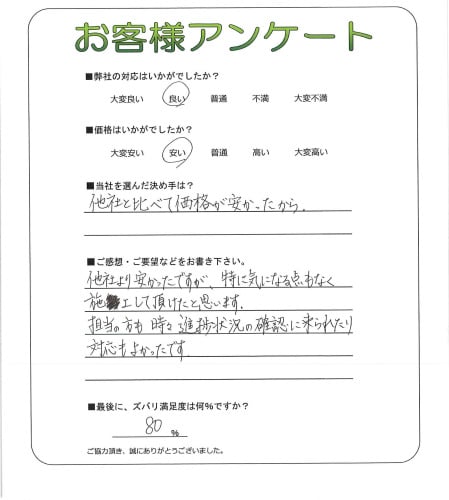 お客様アンケート
■弊社の対応はいかがでしたか?
大変良い 良い 普通 不満 大変不満
■価格はいかがでしたか?
大変安い 安い 普通 高い 大変高い
■当社を選んだ決め手は?
他社と比べて価格が安かったから。
■ご感想・ご要望などをお書き下さい。
他社より安かったですが、特に気になる点もなく
施工して頂けたと思います。
担当の方も時々進捗状況の確認に来られたり
対応もよかったです
■最後に、ズバリ満足度は何%ですか?
80 %
ご協力頂き、誠にありがとうございました。